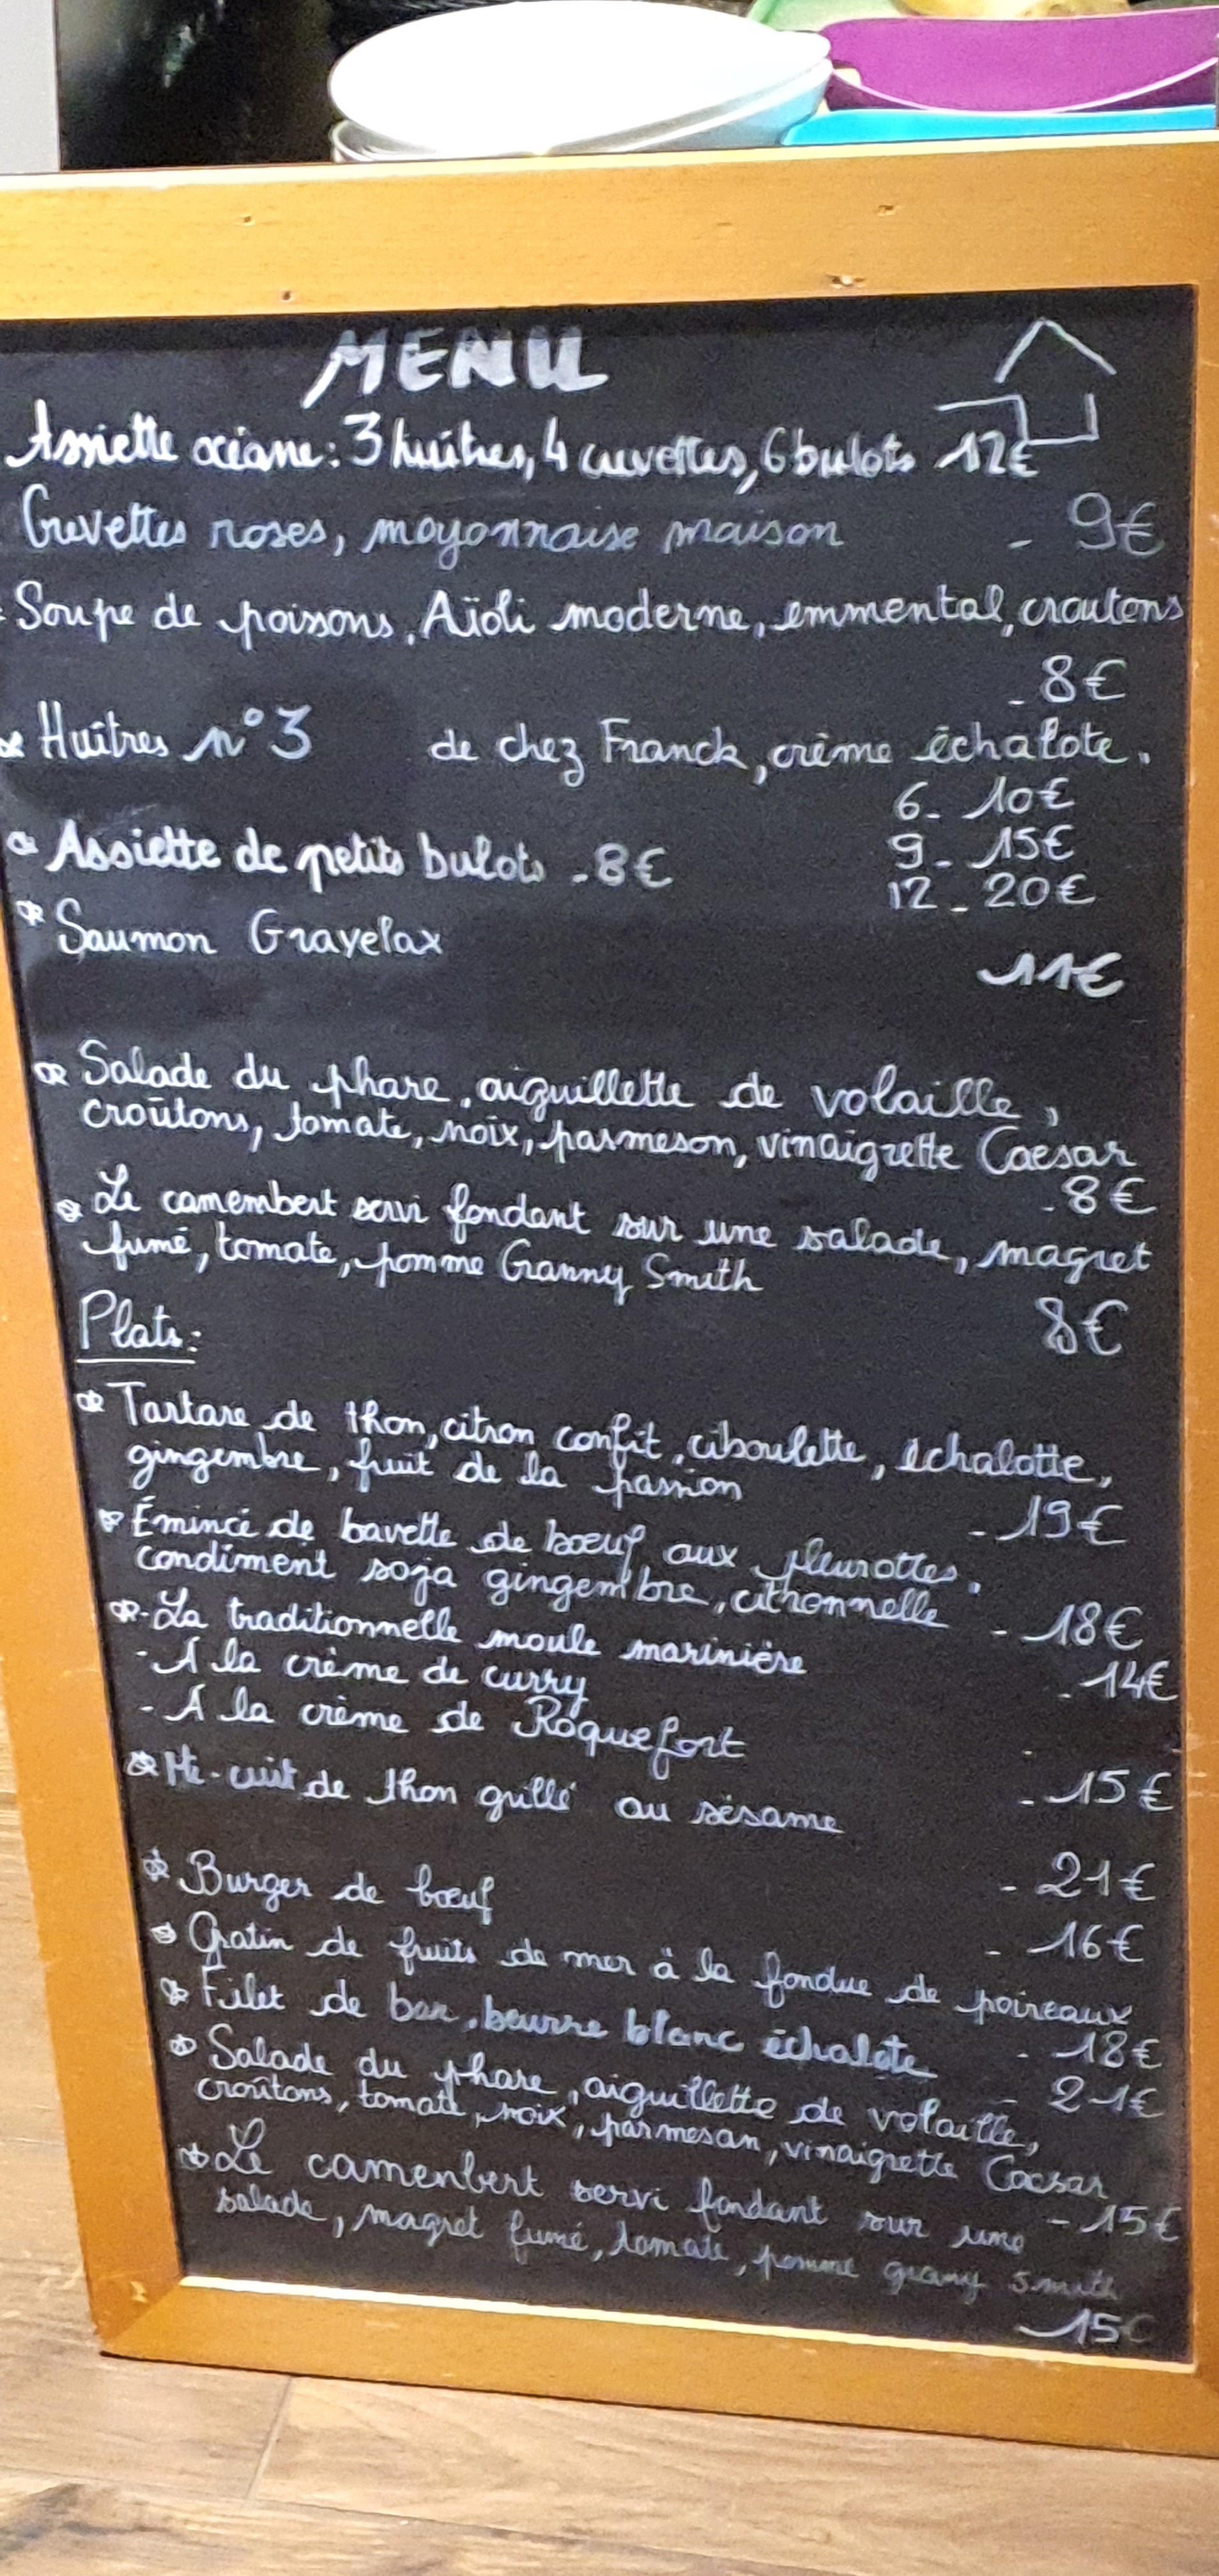 MENU
Assiette océane : 3 huîtres, 4 crevettes, 6 bulots 12€
Crevettes roses, mayonnaise maison - 9€
Soupe de poissons, Aïoli moderne, emmental, croutons
- 8€
Huîtres n°3 de chez Franck, crème échalote.
6 - 10€
9 - 15€
Assiette de petits bulots - 8€
12 - 20€
Saumon Gravelax
11€
Salade du phare, aiguillette de volaille,
croûtons, tomate, noix, parmeson, vinaigrette Caesar
- 8€
Le camembert servi fondant sur une salade, magret
fumé, tomate, pomme Granny Smith
8€
Plats :
Tartare de thon, citron confit, ciboulette, échalotte,
gingembre, fruit de la passion
- 19€
Émincé de bavette de bœuf aux pleurottes,
condiment soja gingembre, citronnelle - 18€
- La traditionnelle moule marinière - 14€
- A la crème de curry
- A la crème de Roquefort
- 15€
Mi-cuit de thon grillé au sésame
- 21€
Burger de bœuf
- 16€
Gratin de fruits de mer à la fondue de poireaux
- 18€
Filet de bar, beurre blanc échalote
- 21€
Salade du phare, aiguillette de volaille,
croûtons, tomate, noix, parmesan, vinaigrette Caesar
- 15€
Le camenbert servi fondant sur une
salade, magret fumé, tomate, pomme grany smith
15€